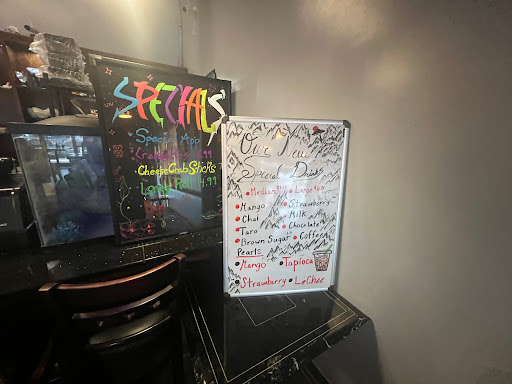 SPECIALS
Special App
.99
Cheese Crab Sticks
4.99
Our New
Special Drinks
• Medium • Large
• Mango • Strawberry
• Chai Milk
• Taro • Chocolate
• Brown Sugar • Coffee
Pearls
• Mango • Tapioca
• Strawberry • LeChee